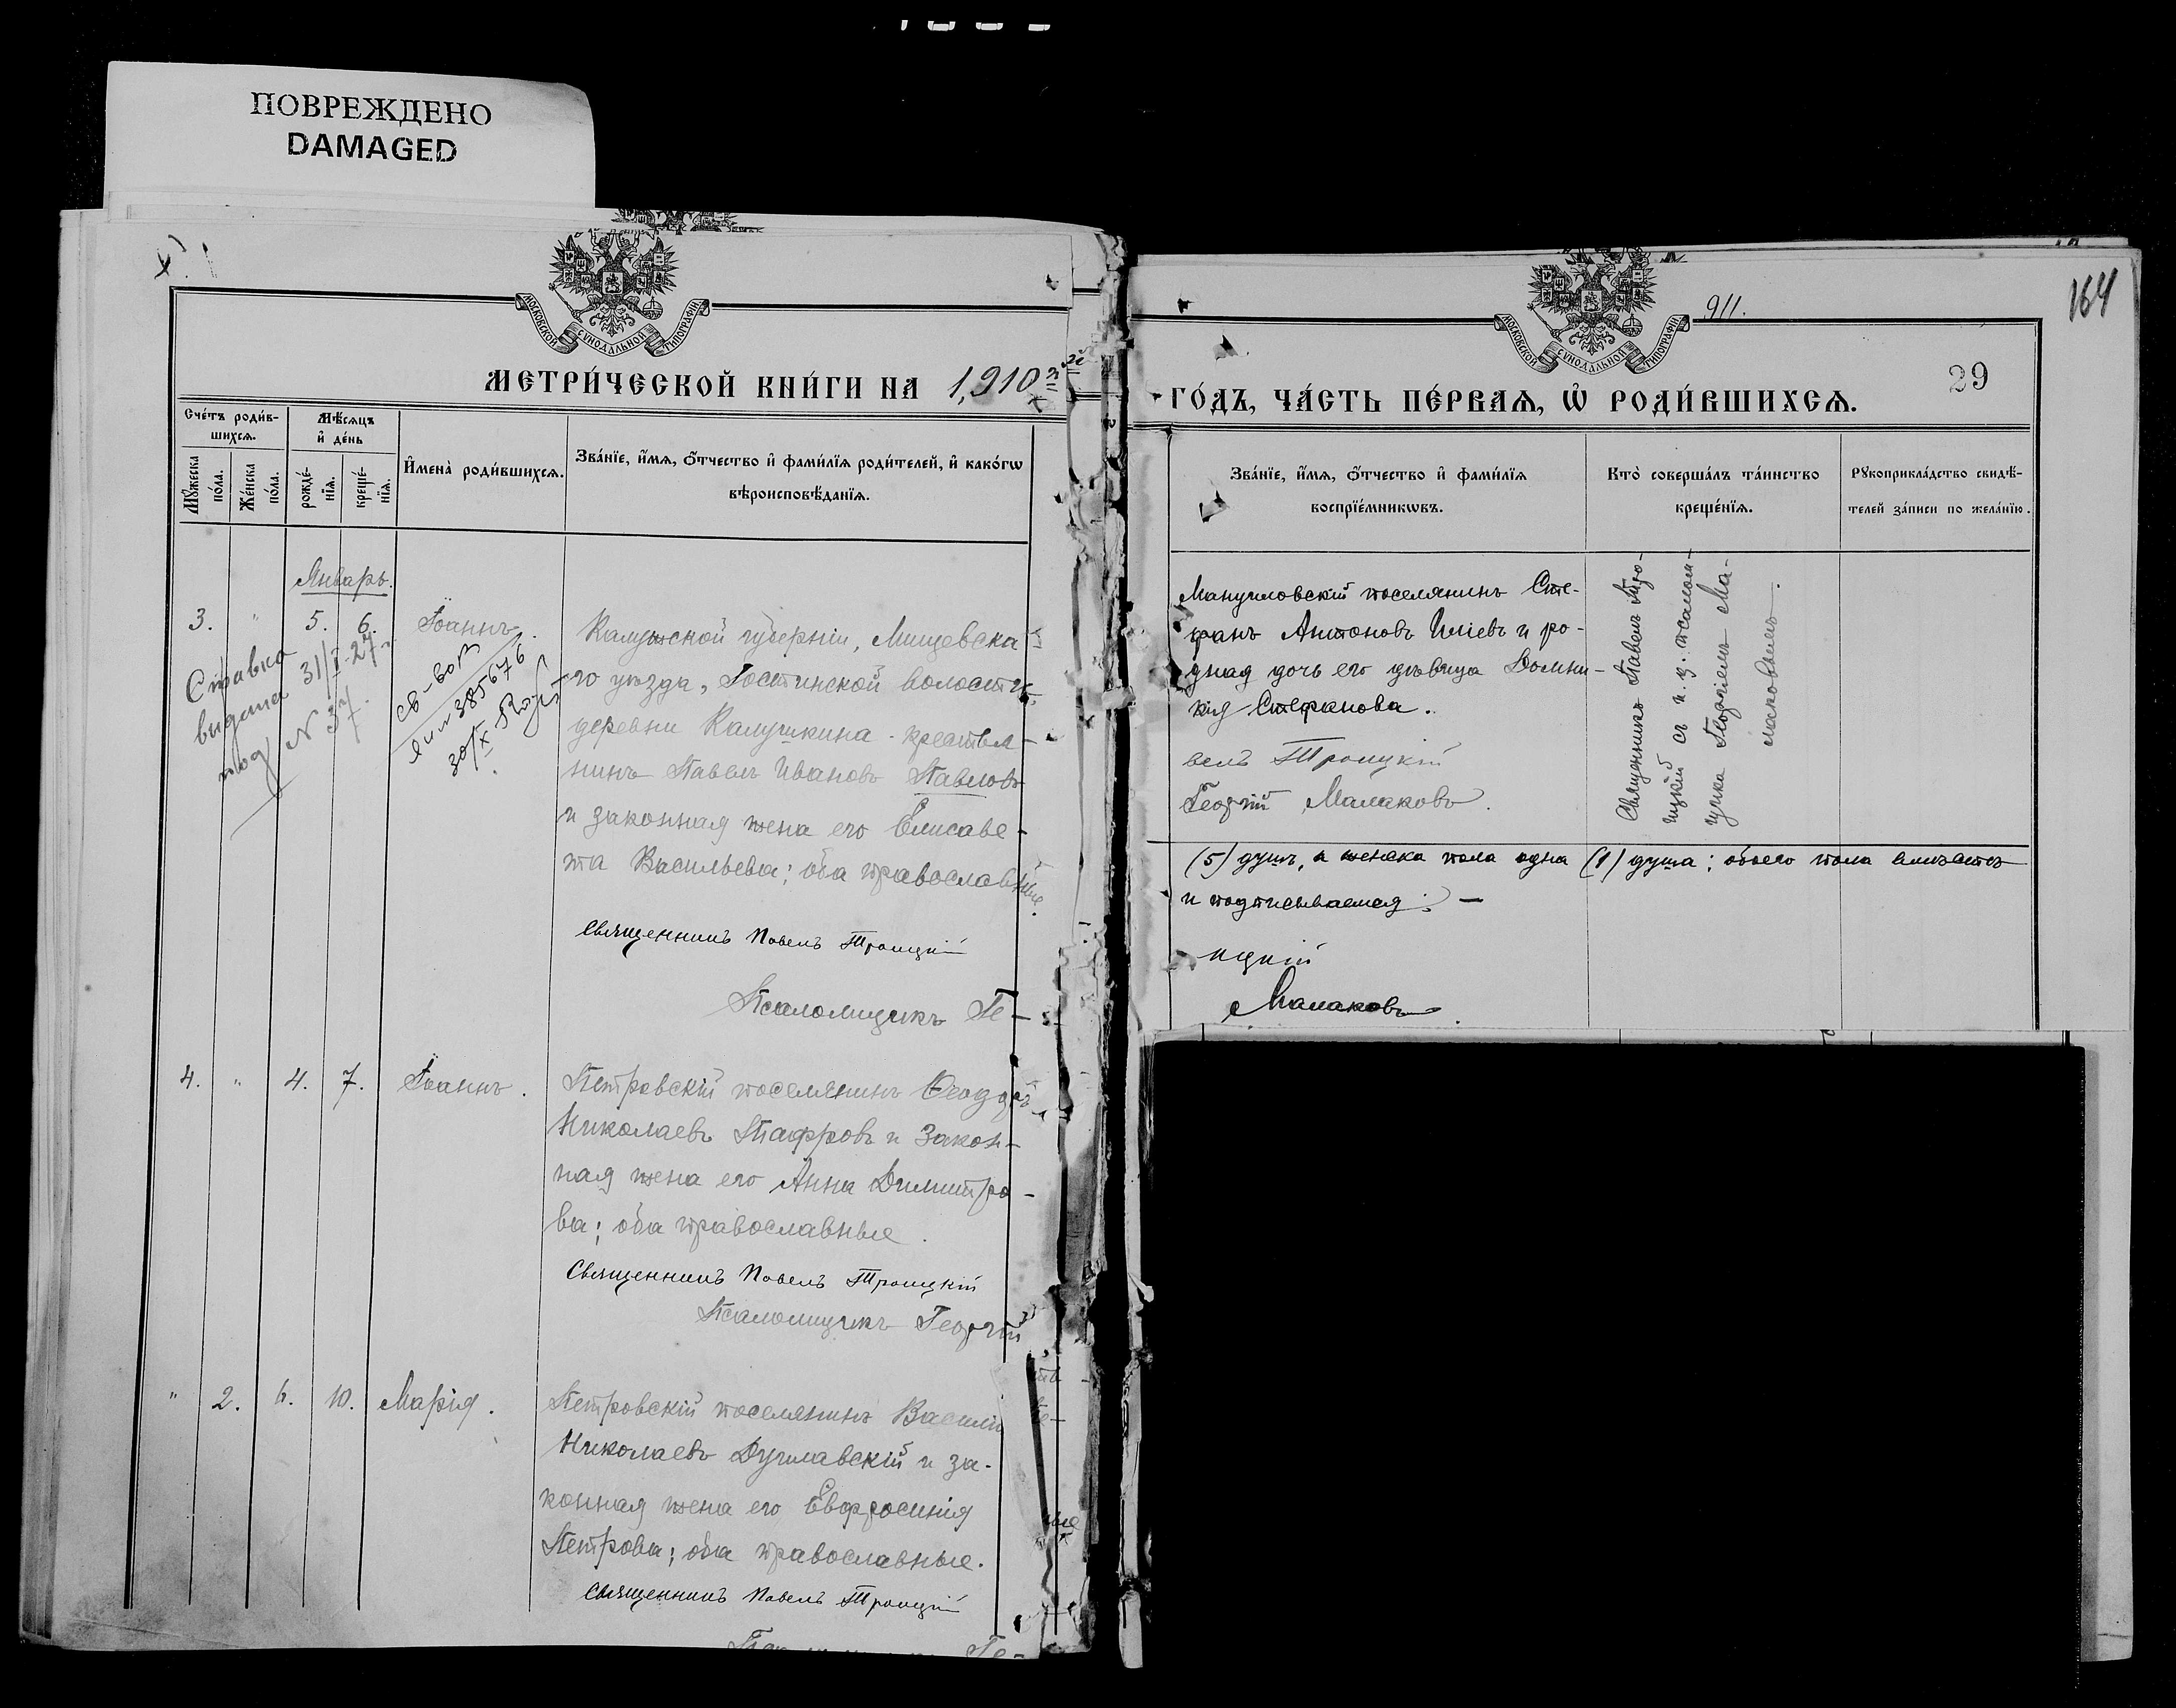 ПОВРЕЖДЕНО
DAMAGED
МОСКОВСКОЙ СѴНОДАЛЬНОЙ ТИПОГРАФІИ
МЕТРИ́ЧЕСКОЙ КНИ́ГИ НА 1,910
Сче́тъ роди́в-
шихсѧ.
Мѣ́сѧцъ
и҆ де́нь
Мꙋ́жеска
по́ла.
Же́нска
по́ла.
рожде́-
нїѧ.
креще́-
нїѧ.
И҆мена̀ роди́вшихсѧ.
Зва́нїе, и҆́мѧ, ѻ҆́тчество и҆ фами́лїѧ роди́телей, и҆ како́гѡ
вѣроисповѣ́данїѧ.
Январь.
3. " 5. 6. Іоаннъ.
Справка
видана 31/I-27.
под N 37.
св-воп
385676
30/X
Калужской губерніи, Мищевска-
го уѣзда, Гостинской волости,
деревни Калушкина - крестья-
нинъ Павелъ Ивановъ Павловъ
и законная жена его Елисаве-
та Васильева; оба православные.
Священникъ Павелъ Троицкій
Псаломщикъ Ге-
4. " 4. 7. Іоаннъ.
Петровскій поселянинъ Ѳеодоръ
Николаевъ Паффровъ и закон-
ная жена его Анна Димитро-
ва; оба православные.
Священникъ Павелъ Троицкій
Псаломщикъ Георгій
" 2. 6. 10. Марія.
Петровскій поселянинъ Василій
Николаевъ Душлавскій и за-
конная жена его Евфросинія
Петрова; оба православные.
Священникъ Павелъ Троицкій
911.
164
МОСКОВСКОЙ СѴНОДАЛЬНОЙ ТИПОГРАФІИ
29
ГО́ДЪ, ЧА́СТЬ ПЕ́РВАѦ, Ѡ҆ РОДИ́ВШИХСѦ.
Зва́нїе, и҆́мѧ, ѻ҆́тчество и҆ фами́лїѧ
воспрїе́мникѡвъ.
Кто̀ соверша́лъ та́инство
креще́нїѧ.
Рꙋкоприкла́дство свидѣ́-
телей за́писи по жела́нїю.
Мануиловскій поселянинъ Сте-
фанъ Антоновъ Иліевъ и ро-
дная дочь его дѣвица Домни-
кія Стефанова.
велъ Троицкій
Георгій Малаковъ.
Священникъ Павелъ Тро-
ицкій съ и. д. псалом-
щика Георгіемъ Ма-
лаковымъ.
(5) душъ, а женска пола одна (1) душа; обоего пола вмѣстѣ
и подписываемся: —
ицкій
Малаковъ.